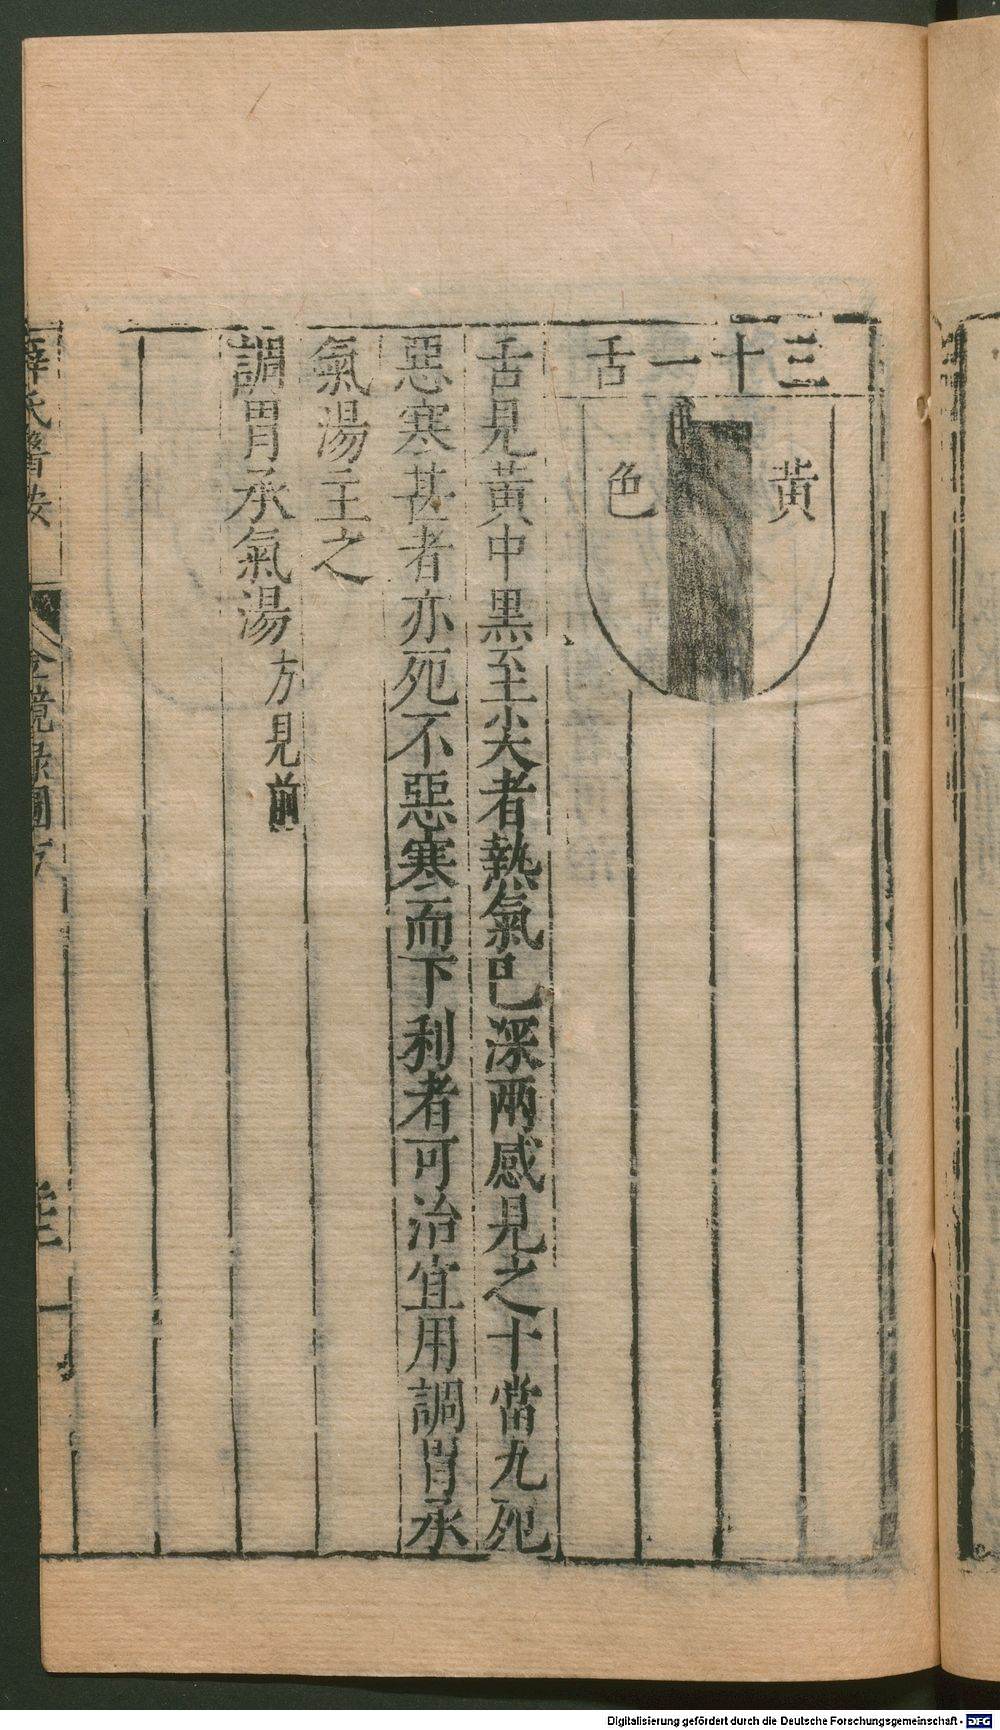 三十一舌
黃
色
舌見黃中黑至尖者熱氣已深兩感見之十當九死
惡寒甚者亦死不惡寒而下利者可治宜用調胃承
氣湯主之
調胃承氣湯方見前
薛氏醫按
金鏡錄圖
Digitalisierung gefördert durch die Deutsche Forschungsgemeinschaft - DFG